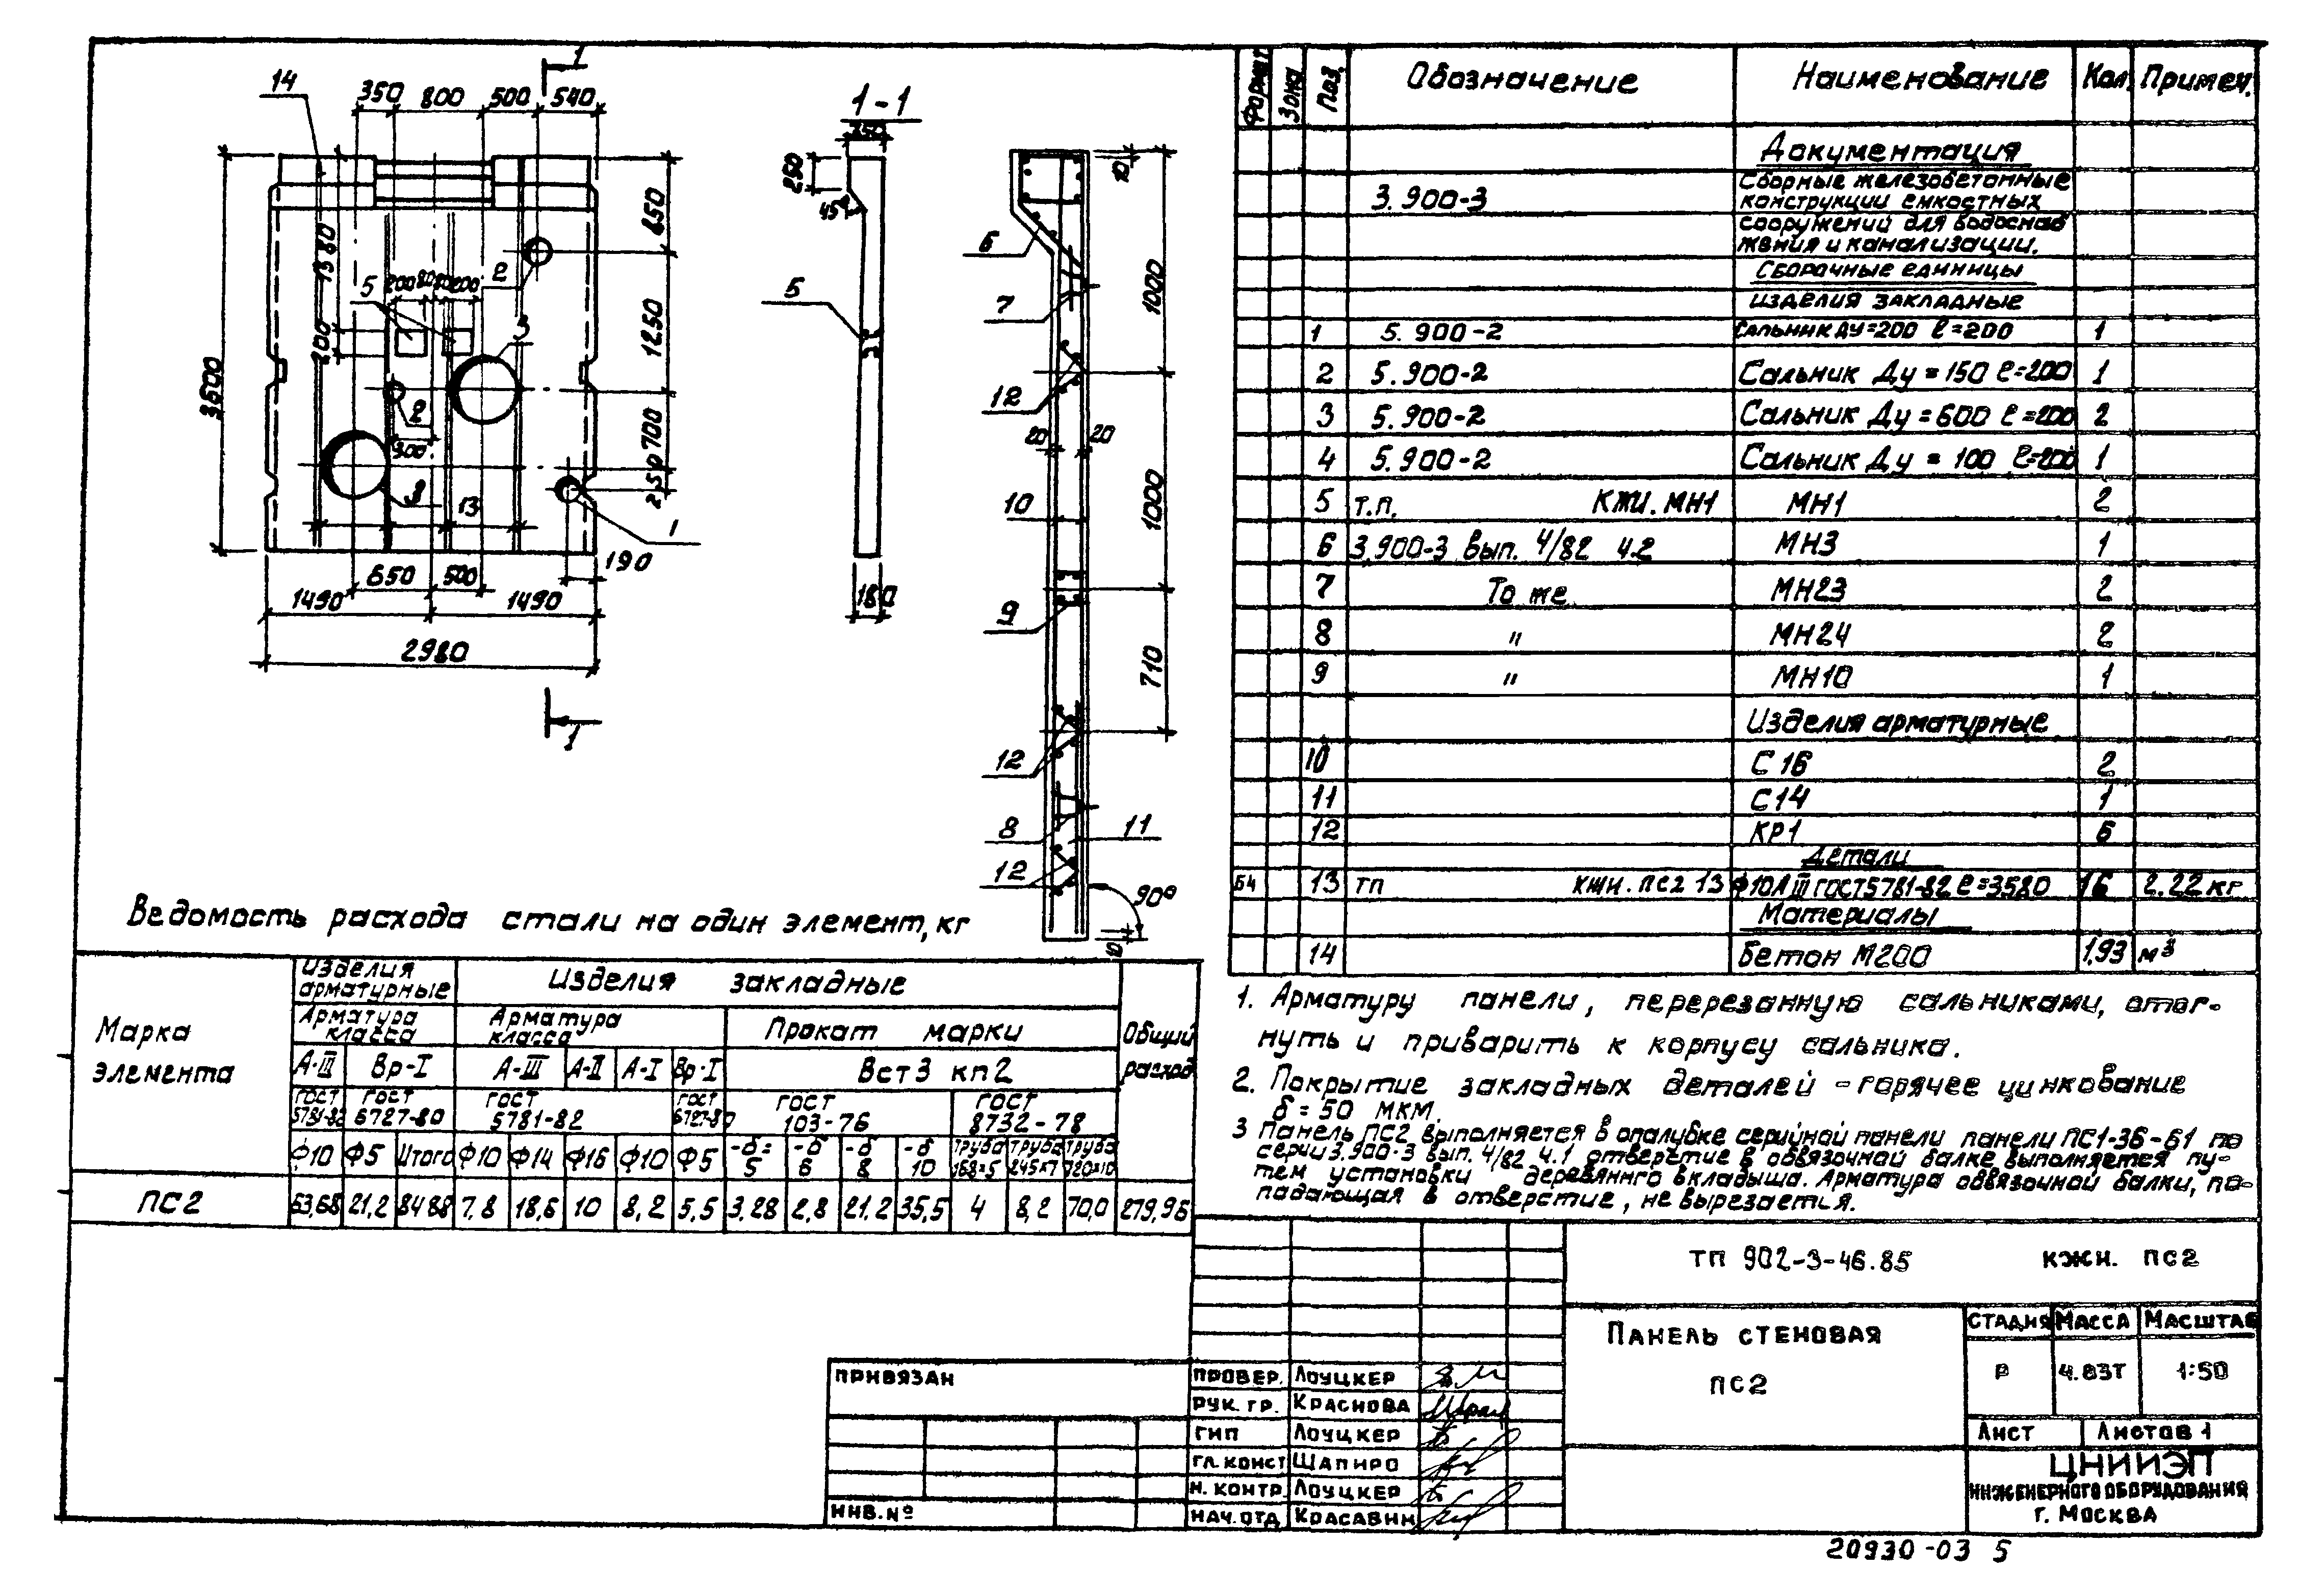 14
350 800 500 540
1
1-1
350
250
45°
3600
1380
200
200 80 80 200
5
2
3
2
300
3
13
1
190
650 500
1490 1490
2980
1
850
1250
700
250
5
180
10
6
7
12
20 20
10
9
12
8 11
12
90°
10
1000
1000
710
Формат Зона Поз. Обозначение Наименование Кол. Примеч.
Документация
3.900-3 Сборные железобетонные
конструкции емкостных
сооружений для водоснаб
жения и канализации.
Сборочные единицы
изделия закладные
1 5.900-2 Сальник Ду=200 ℓ=200 1
2 5.900-2 Сальник Ду=150 ℓ=200 1
3 5.900-2 Сальник Ду=600 ℓ=200 2
4 5.900-2 Сальник Ду = 100 ℓ=200 1
5 т.п. КЖИ.МН1 МН1 2
6 3.900-3 вып. 4/82 ч.2 МН3 1
7 То же МН23 2
8 " МН24 2
9 " МН10 1
Изделия арматурные
10 С16 2
11 С14 1
12 КР1 6
Детали
Б4 13 тп КЖИ.ПС2 13 Ф10АIII ГОСТ5781-82 ℓ=3580 16 2.22кг
Материалы
14 Бетон М200 1,93 м³
Ведомость расхода стали на один элемент, кг
Марка
элемента
Изделия
арматурные
Изделия закладные
Общий
расход
Арматура
класса
Арматура
класса
Прокат марки
А-III Вр-I А-III А-II А-I Вр-I Вст3 кп2
ГОСТ
5781-82
ГОСТ
6727-80
ГОСТ
5781-82
ГОСТ
6727-80
ГОСТ
103-76
ГОСТ
8732-78
Ф10 Ф5 Итого Ф10 Ф14 Ф16 Ф10 Ф5 -δ=5 -δ 6 -δ 8 -δ 10 Труба 168×5 Труба 245×7 Труба 720×10
ПС2 63,68 21,2 84 88 7.8 18,6 10 8,2 5,5 3,28 2,8 21.2 35,5 4 8,2 70,0 279,96
1. Арматуру панели, перерезанную сальниками, отог-
нуть и приварить к корпусу сальника.
2. Покрытие закладных деталей - горячее цинкование
δ = 50 мкм.
3 Панель ПС2 выполняется в опалубке серийной панели панели ПС1-36-Б1 по
серии3.900-3 вып. 4/82 ч.1 отверстие в обвязочной балке выполняется пу-
тем установки деревянного вкладыша. Арматура обвязочной балки, по-
падающая в отверстие, не вырезается.
ТП 902-3-46.85 КЖИ. ПС2
Панель стеновая
ПС2
Стадия Масса Масштаб
Р 4.83т 1:50
Лист Листов 1
ЦНИИЭП
инженерного оборудования
г. Москва
Привязан
Инв.№
Провер. Лоуцкер
Рук. гр. Краснова
ГИП Лоуцкер
Гл. конст Шапиро
Н. контр. Лоуцкер
Нач.отд Красавин
20930-03 5